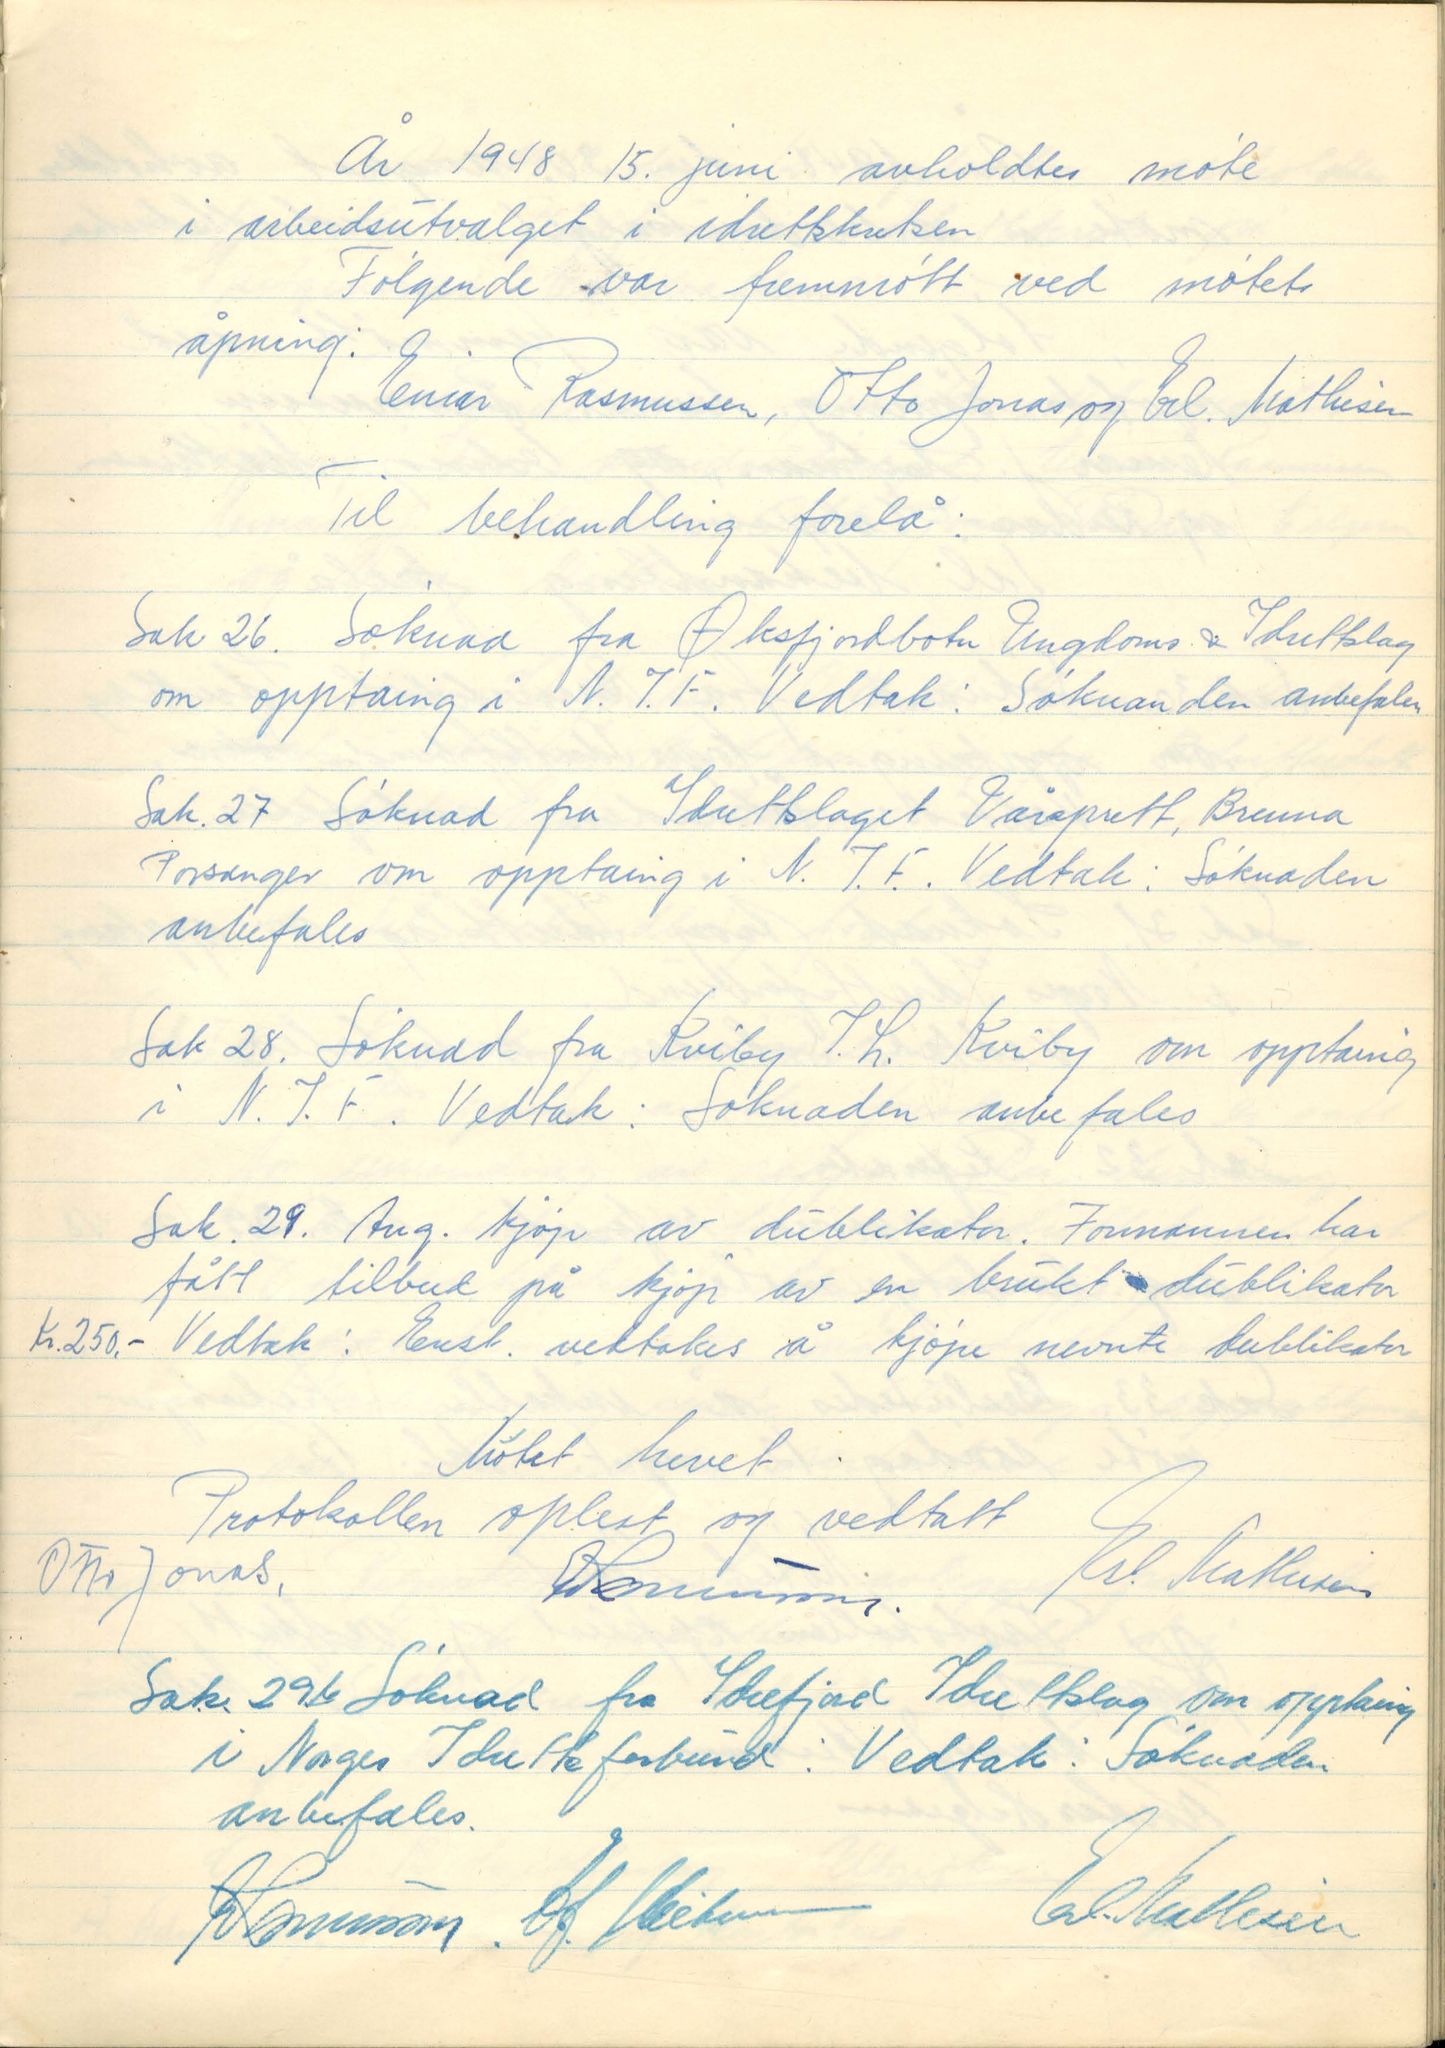 År 1948 15. juni avholdtes møte
i arbeidsutvalget i idrettskretsen
Følgende var fremmøtt ved møtets
åpning:
Einar Rasmussen, Otto Jonas og Erl. Mathisen
Til behandling forelå:
Sak 26. Søknad fra Øksfjordbotn Ungdoms & Idrettslag
om opptaing i N.I.F. Vedtak: Søknanden anbefales
Sak. 27 Søknad fra Idrettslaget Vårsprett, Brenna
Porsanger om opptaing i N.I.F. Vedtak: Søknaden
anbefales
Sak 28. Søknad fra Kviby I.L. Kviby om opptaing
i N.I.F. Vedtak: Søknaden anbefales
Sak. 29. Ang. kjøp av dublikator. Formannen har
fått tilbud på kjøp av en brukt dublikator
Kr. 250.- Vedtak: Enst. vedtakes å kjøpe nevnte dublikator
Møtet hevet.
Protokollen oplest og vedtatt
Otto Jonas. E Rasmussen. Erl. Mathisen
Sak. 29b Søknad fra Idrefjord Idrettslag om opptaing
i Norges Idrettsforbund: Vedtak: Søknaden
anbefales.
E Rasmussen. Erl. Mathisen